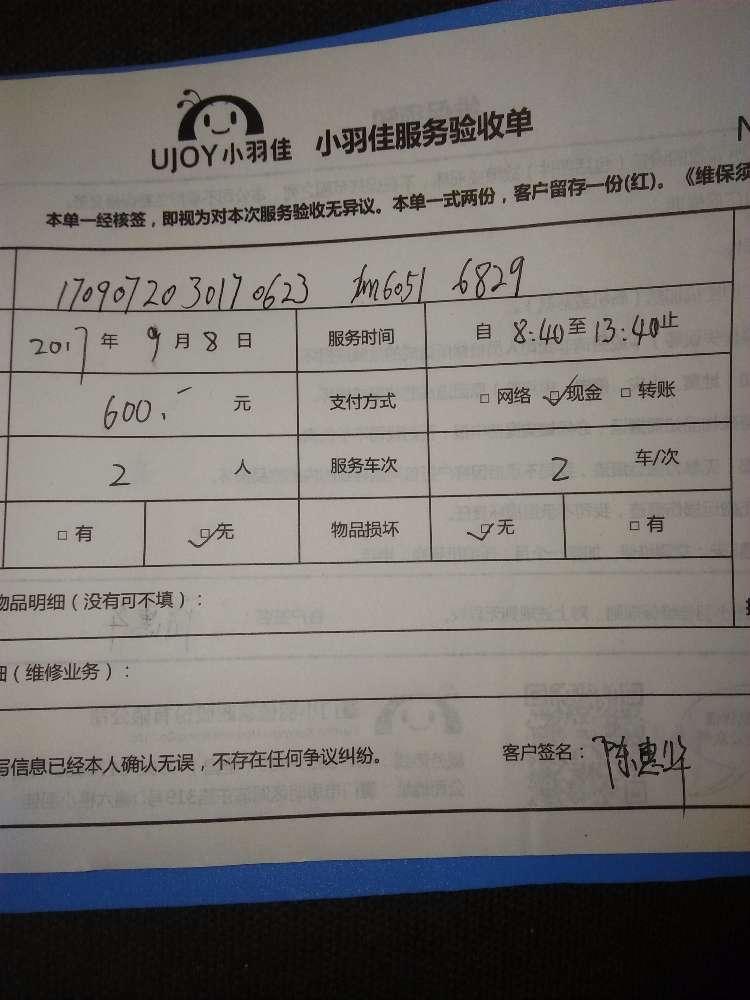 UJOY小羽佳 小羽佳服务验收单
本单一经核签，即视为对本次服务验收无异议。本单一式两份，客户留存一份(红)。《维保须
1709072030170623 xm6051 6829
2017年9月8日 服务时间 自8:40至13:40止
600.- 元 支付方式 □网络 □现金 □转账
2 人 服务车次 2 车/次
□有 □无 物品损坏 □无 □有
物品明细（没有可不填）：
细（维修业务）：
写信息已经本人确认无误，不存在任何争议纠纷。 客户签名：陈惠华